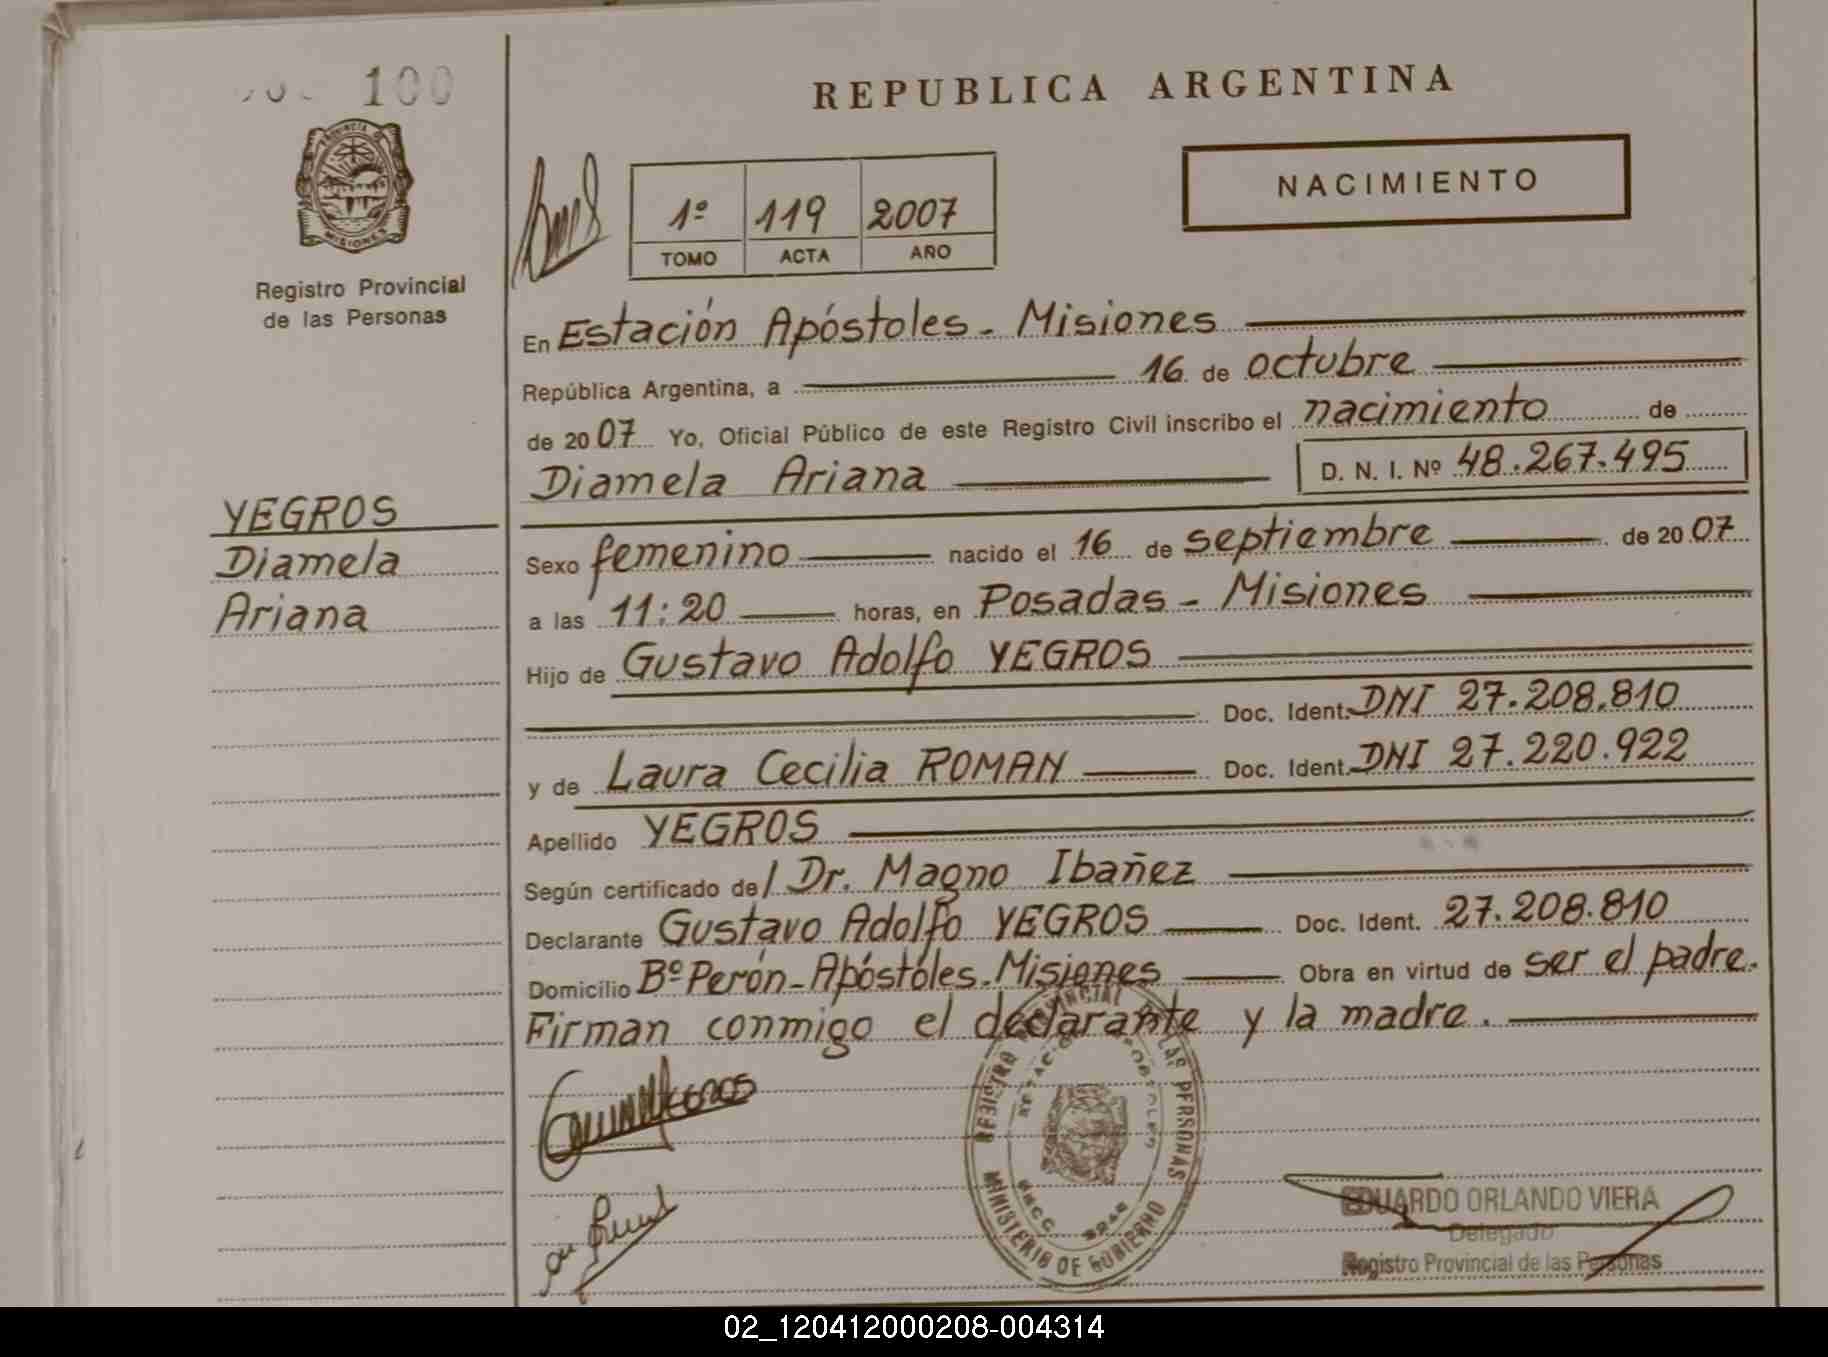 100
REPUBLICA ARGENTINA
PROVINCIA DE MISIONES
Registro Provincial
de las Personas
1º 119 2007
TOMO ACTA AÑO
NACIMIENTO
En Estación Apóstoles - Misiones
República Argentina, a 16 de octubre
de 2007 Yo, Oficial Público de este Registro Civil inscribo el nacimiento de
Diamela Ariana D. N. I. Nº 48.267.495
YEGROS
Diamela
Ariana
Sexo femenino nacido el 16 de septiembre de 2007
a las 11:20 horas, en Posadas - Misiones
Hijo de Gustavo Adolfo YEGROS
Doc. Ident. DNI 27.208.810
y de Laura Cecilia ROMAN Doc. Ident. DNI 27.220.922
Apellido YEGROS
Según certificado del Dr. Magno Ibañez
Declarante Gustavo Adolfo YEGROS Doc. Ident. 27.208.810
Domicilio Bº Perón - Apóstoles - Misiones Obra en virtud de ser el padre.
Firman conmigo el declarante y la madre.
REGISTRO PROVINCIAL DE LAS PERSONAS
MINISTERIO DE GOBIERNO
EDUARDO ORLANDO VIERA
Delegado
Registro Provincial de las Personas
02_120412000208-004314